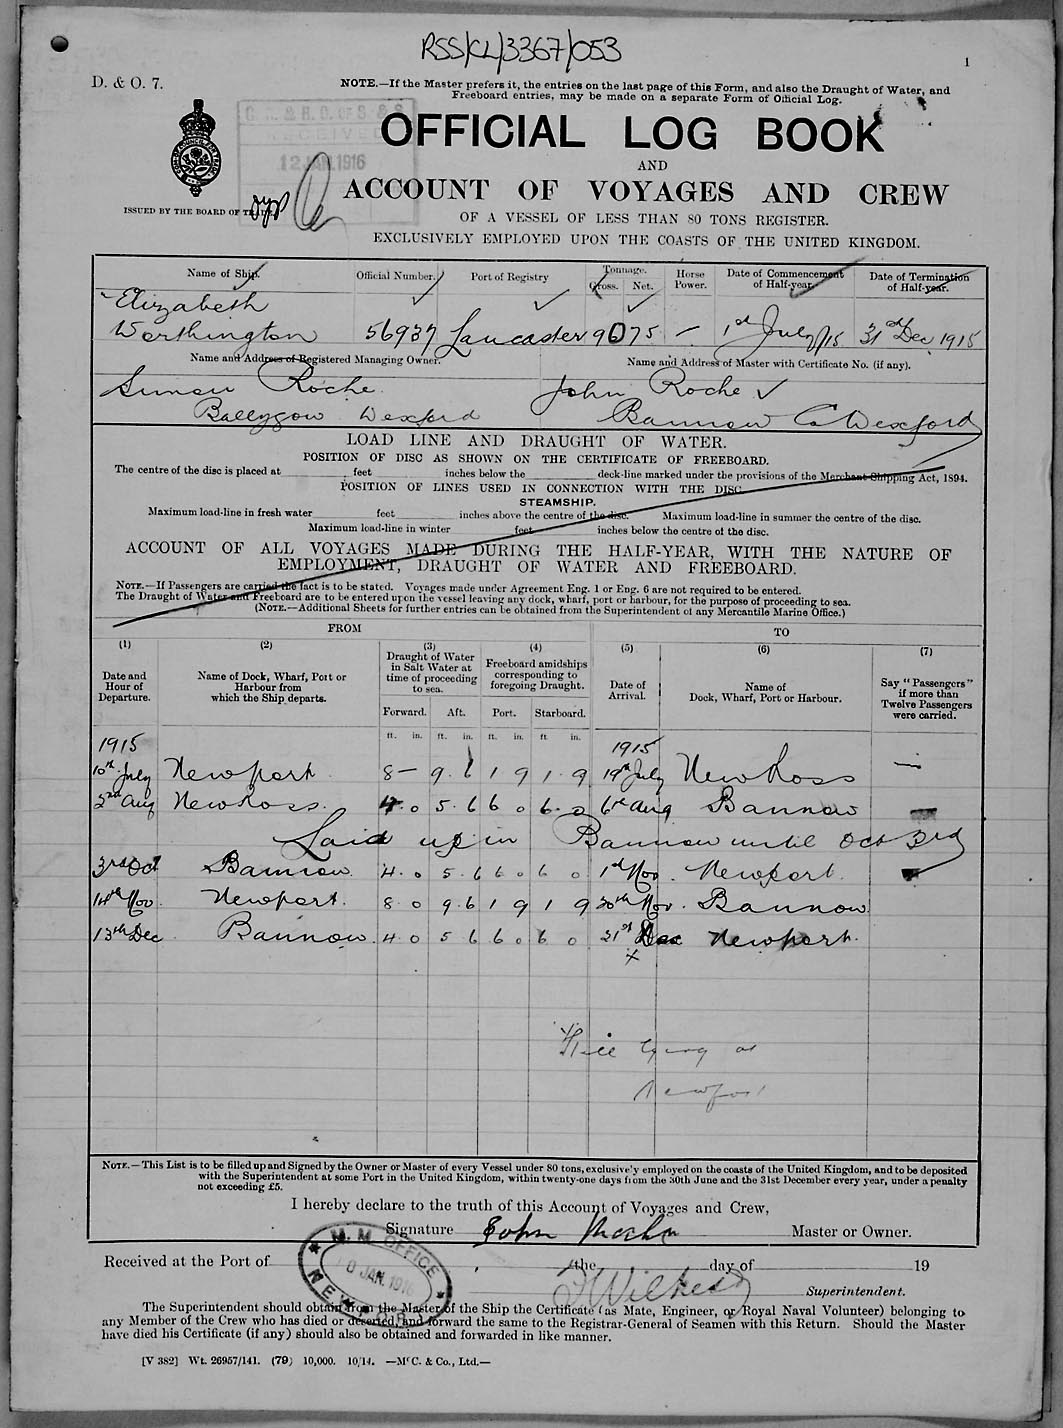 RSS/CL/3367/053
1
D. & O. 7.
NOTE.—If the Master prefers it, the entries on the last page of this Form, and also the Draught of Water, and
Freeboard entries, may be made on a separate Form of Official Log.
RECEIVED
12 JAN. 1916
OFFICIAL LOG BOOK
AND
ACCOUNT OF VOYAGES AND CREW
ISSUED BY THE BOARD OF TRADE
OF A VESSEL OF LESS THAN 80 TONS REGISTER.
EXCLUSIVELY EMPLOYED UPON THE COASTS OF THE UNITED KINGDOM.
Name of Ship. Official Number. Port of Registry Tonnage. Gross. Net. Horse Power. Date of Commencement of Half-year. Date of Termination of Half-year.
Elizabeth
Worthington 56937 Lancaster 90 75 — 1st July/15 31st Dec 1915
Name and Address of Registered Managing Owner. Name and Address of Master with Certificate No. (if any).
Simon Roche John Roche
Ballygow Wexford Bannow Co Wexford
LOAD LINE AND DRAUGHT OF WATER.
POSITION OF DISC AS SHOWN ON THE CERTIFICATE OF FREEBOARD.
The centre of the disc is placed at feet inches below the deck-line marked under the provisions of the Merchant Shipping Act, 1894.
POSITION OF LINES USED IN CONNECTION WITH THE DISC
STEAMSHIP.
Maximum load-line in fresh water feet inches above the centre of the disc. Maximum load-line in summer the centre of the disc.
Maximum load-line in winter feet inches below the centre of the disc.
ACCOUNT OF ALL VOYAGES MADE DURING THE HALF-YEAR, WITH THE NATURE OF
EMPLOYMENT, DRAUGHT OF WATER AND FREEBOARD.
NOTE.—If Passengers are carried the fact is to be stated. Voyages made under Agreement Eng. 1 or Eng. 6 are not required to be entered.
The Draught of Water and Freeboard are to be entered upon the vessel leaving any dock, wharf, port or harbour, for the purpose of proceeding to sea.
(NOTE.—Additional Sheets for further entries can be obtained from the Superintendent of any Mercantile Marine Office.)
FROM TO
(1) (2) (3) (4) (5) (6) (7)
Date and Hour of Departure. Name of Dock, Wharf, Port or Harbour from which the Ship departs. Draught of Water in Salt Water at time of proceeding to sea. Freeboard amidships corresponding to foregoing Draught. Date of Arrival. Name of Dock, Wharf, Port or Harbour. Say "Passengers" if more than Twelve Passengers were carried.
Forward. Aft. Port. Starboard.
ft. in. ft. in. ft. in. ft. in.
1915 1915
10th July Newport 8 — 9.6 1 9 1.9 19th July New Ross —
2nd Aug New Ross. 4.0 5.6 6 0 6.0 6th Aug Bannow
Laid up in Bannow until Oct 3rd
3rd Oct Bannow 4.0 5.6 6.0 6 0 1st Nov. Newport.
14th Nov. Newport. 8 0 9.6 1 9 1 9 30th Nov. Bannow
13th Dec Bannow. 4 0 5 6 6 0 6 0 31st Dec Newport.
x
Still lying at
Newport
NOTE.—This List is to be filled up and Signed by the Owner or Master of every Vessel under 80 tons, exclusively employed on the coasts of the United Kingdom, and to be deposited
with the Superintendent at some Port in the United Kingdom, within twenty-one days from the 30th June and the 31st December every year, under a penalty
not exceeding £5.
I hereby declare to the truth of this Account of Voyages and Crew,
Signature John Roche Master or Owner.
M. M. OFFICE
JAN. 1916
NEWPORT
Received at the Port of the day of 19
Superintendent.
The Superintendent should obtain from the Master of the Ship the Certificate (as Mate, Engineer, or Royal Naval Volunteer) belonging to
any Member of the Crew who has died or deserted, and forward the same to the Registrar-General of Seamen with this Return. Should the Master
have died his Certificate (if any) should also be obtained and forwarded in like manner.
[V 382] Wt. 26957/141. (79) 10,000. 10/14. —McC. & Co., Ltd.—